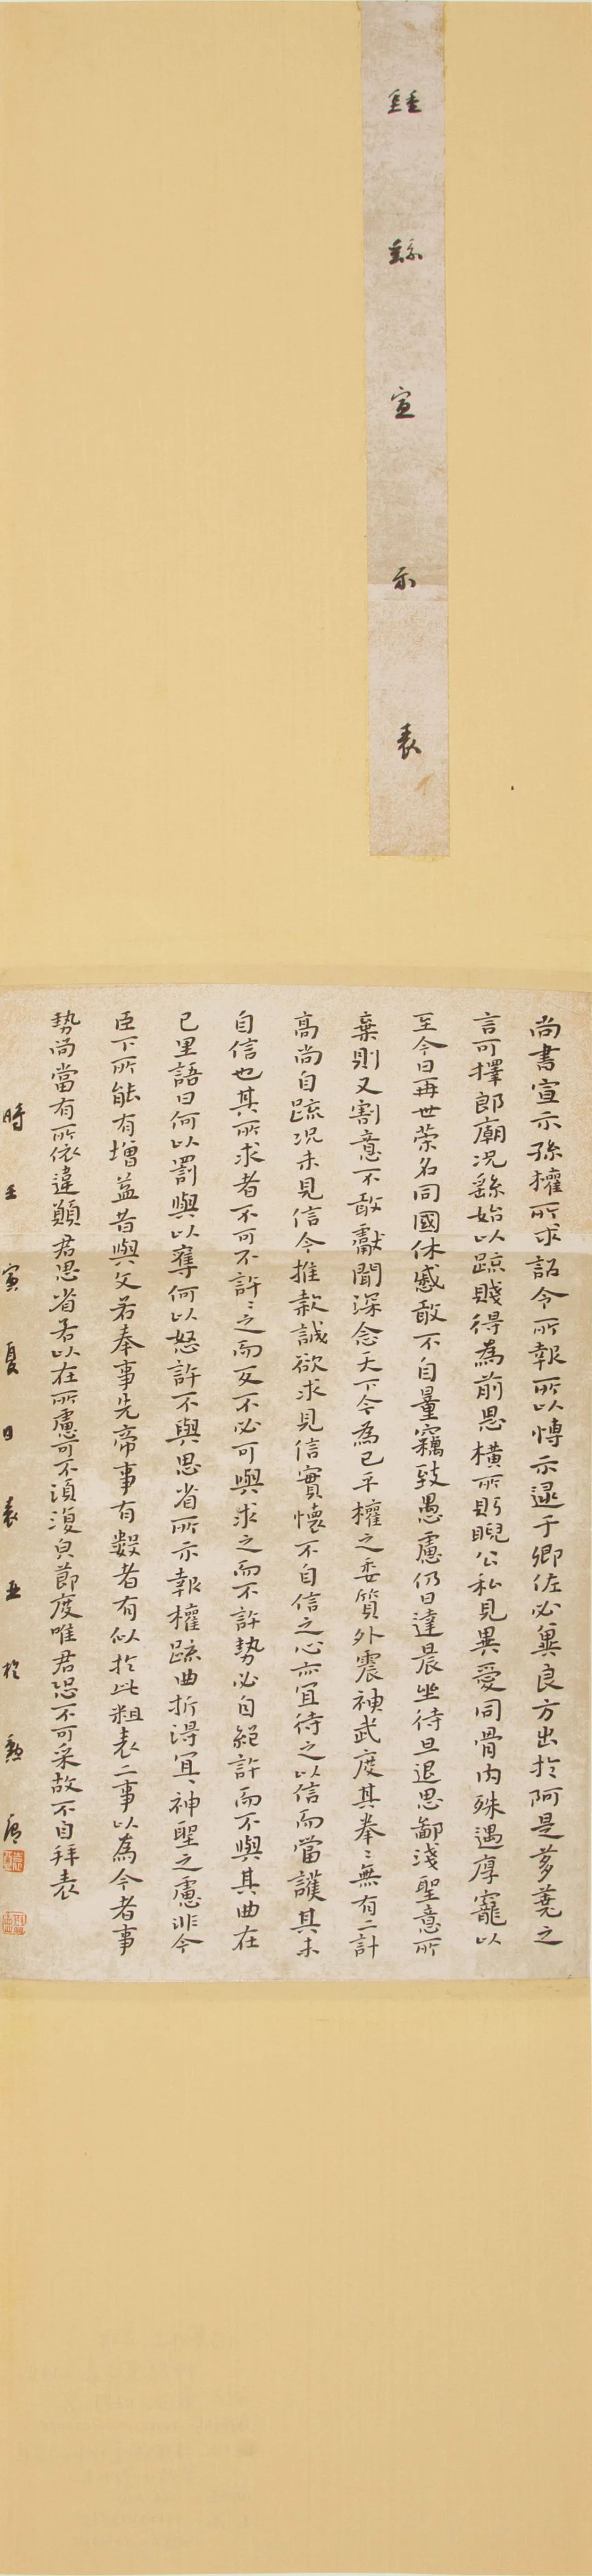 鍾繇宣示表
尚書宣示孫權所求詔令所報所以博示逮于卿佐必冀良方出於阿是芻蕘之
言可擇郎廟況繇始以疏賤得為前恩橫所眄睨公私見異愛同骨肉殊遇厚寵以
至今日再世榮名同國休慼敢不自量竊致愚慮仍日達晨坐待旦退思鄙淺聖意所
棄則又割意不敢獻聞深念天下今為已平權之委質外震神武度其拳〻無有二計
高尚自疏況未見信今推款誠欲求見信實懷不自信之心亦宜待之以信而當護其未
自信也其所求者不可不許〻之而反不必可與求之而不許勢必自絕許而不與其曲在
己里語曰何以罰與以奪何以怒許不與思省所示報權疏曲折得宜神聖之慮非今
臣下所能有增益昔與文若奉事先帝事有數者有似於此粗表二事以為今者事
勢尚當有所依違願君思省若以在所慮可不須復皃節度唯君恐不可采故不自拜表
時壬寅夏日袁亚於